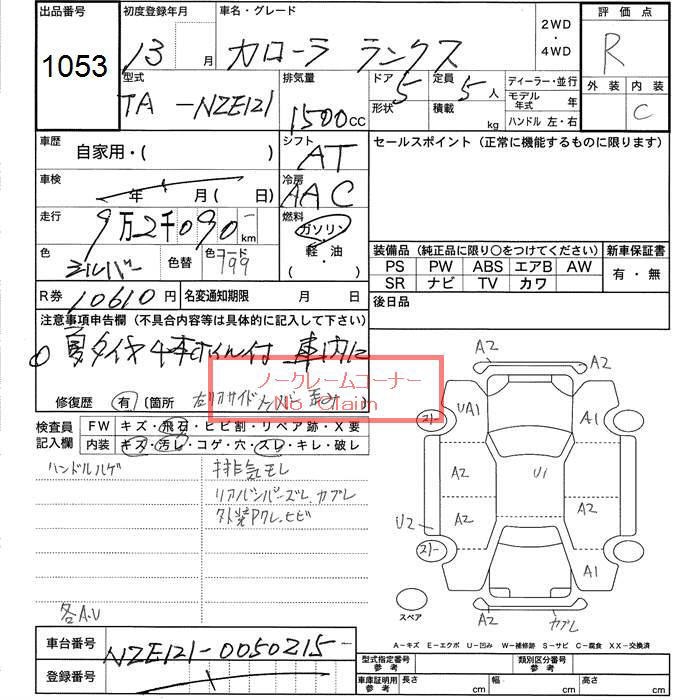 出品番号 初度登録年月 車名・グレード 2WD・4WD 評価点
1053 13 月 カローラ ランクス R
型式 排気量 ドア形状 5 定員 5 人 積載 kg ディーラー・並行 外装 内装
TA-NZE121 1500cc モデル年式 年 C
ハンドル 左・右
車歴 自家用・( ) シフト AT セールスポイント(正常に機能するものに限ります)
車検 年 月( 日) 冷房 AAC
走行 9万2千090 km 燃料 ガソリン
軽・油
( ・ )
色 シルバー 色替 色コード 199
装備品(純正品に限り○をつけてください) 新車保証書
PS PW ABS エアB AW 有・無
SR ナビ TV カワ
R券 10610円 名変通知期限 月 日 後日品
注意事項申告欄(不具合内容等は具体的に記入して下さい)
夏タイヤ4本ホイル付 車内に
ノークレームコーナー
No Claim
修復歴 有 〔箇所 左リアサイド
検査員記入欄 FW キズ・飛石・ヒビ割・リペア跡・X要
内装 キズ・汚レ・コゲ・穴・スレ・キレ・破レ
ハンドルハゲ 排気モレ
リアバンパーズレ、カブレ
外装アクレ、ヒビ
各A.U
A2
A2
UA1 A1
A2 U1
A2 A2
U2
A1
A2 カブレ
スペア
A-キズ E-エクボ U-凹み W-補修跡 S-サビ C-腐食 XX-交換済
車台番号 NZE121-0050215
登録番号
型式指定番号 参考 類別区分番号 参考
車庫証明用 参考 長さ cm 幅 cm 高さ cm